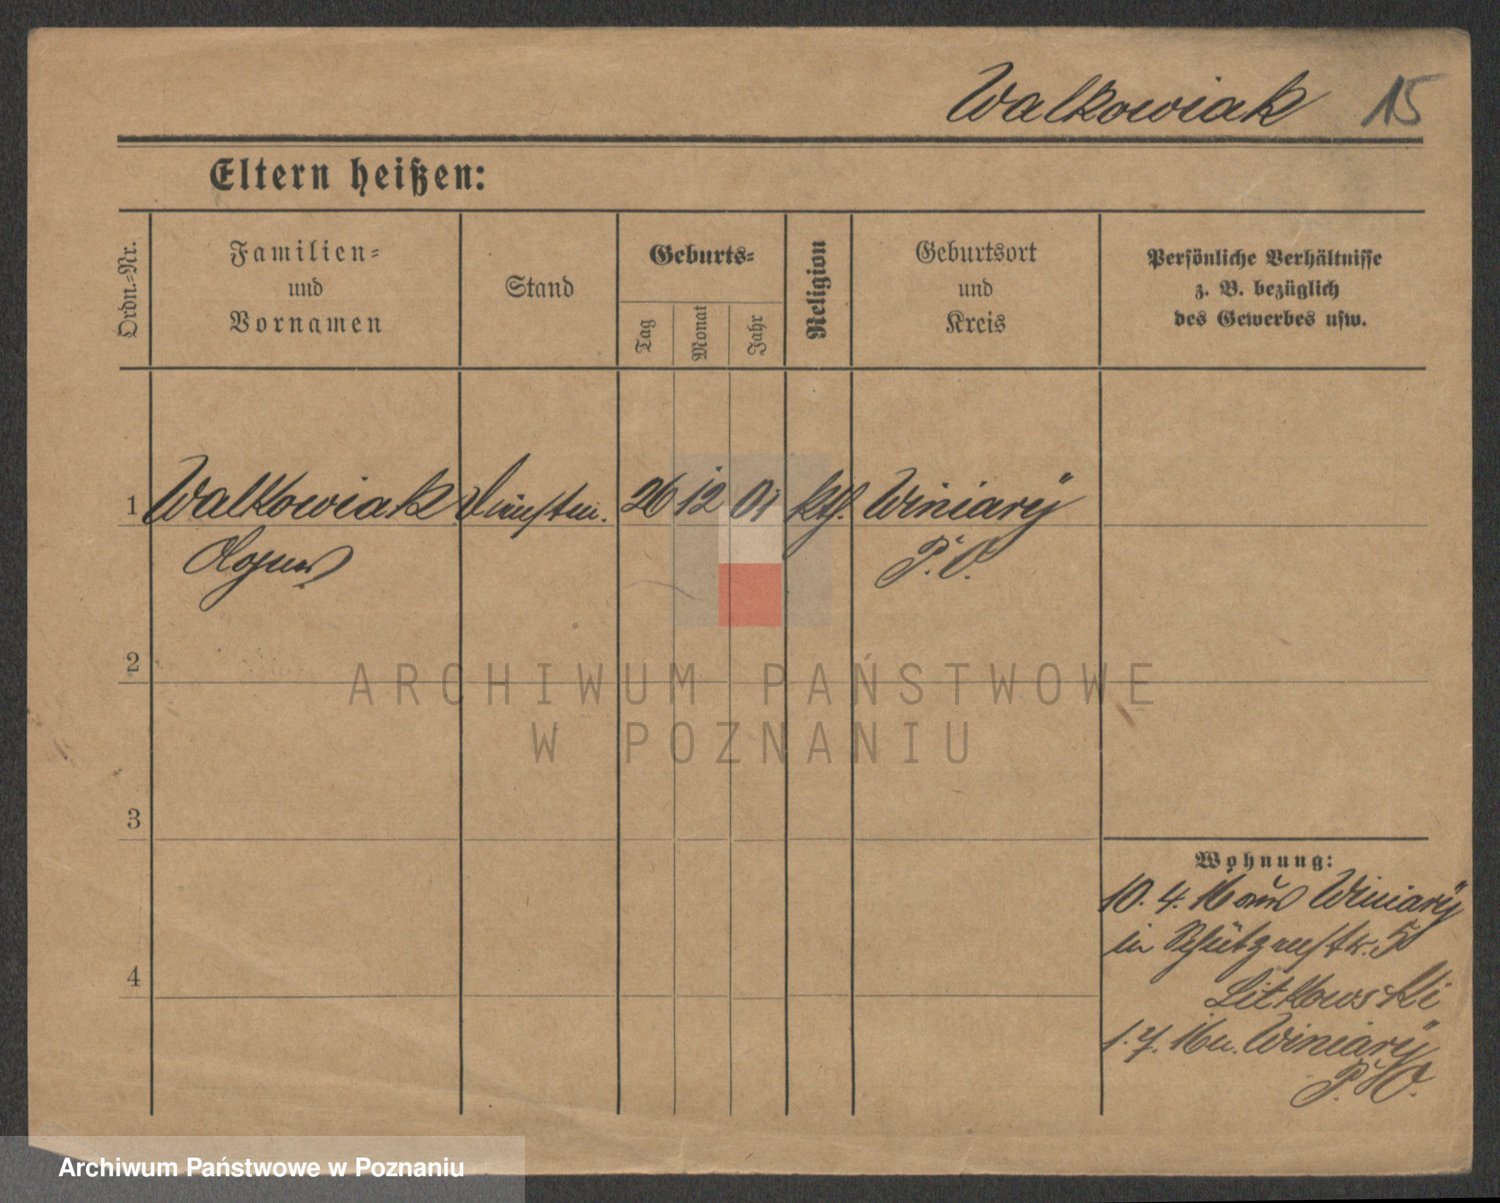 Walkowiak 15
Eltern heißen:
Ordn.-Nr.
Familien-
und
Vornamen
Stand
Geburts-
Tag
Monat
Jahr
Religion
Geburtsort
und
Kreis
Persönliche Verhältnisse
z. B. bezüglich
des Gewerbes usw.
1 Walkowiak 26 12 01 kth. Winiary
P. O.
2
3
4
Wohnung:
10. 4. 16 aus Winiary
in Schützenstr. 5
Litkowski
1. 7. 16 n. Winiary
P. O.
ARCHIWUM PAŃSTWOWE
W POZNANIU
Archiwum Państwowe w Poznaniu